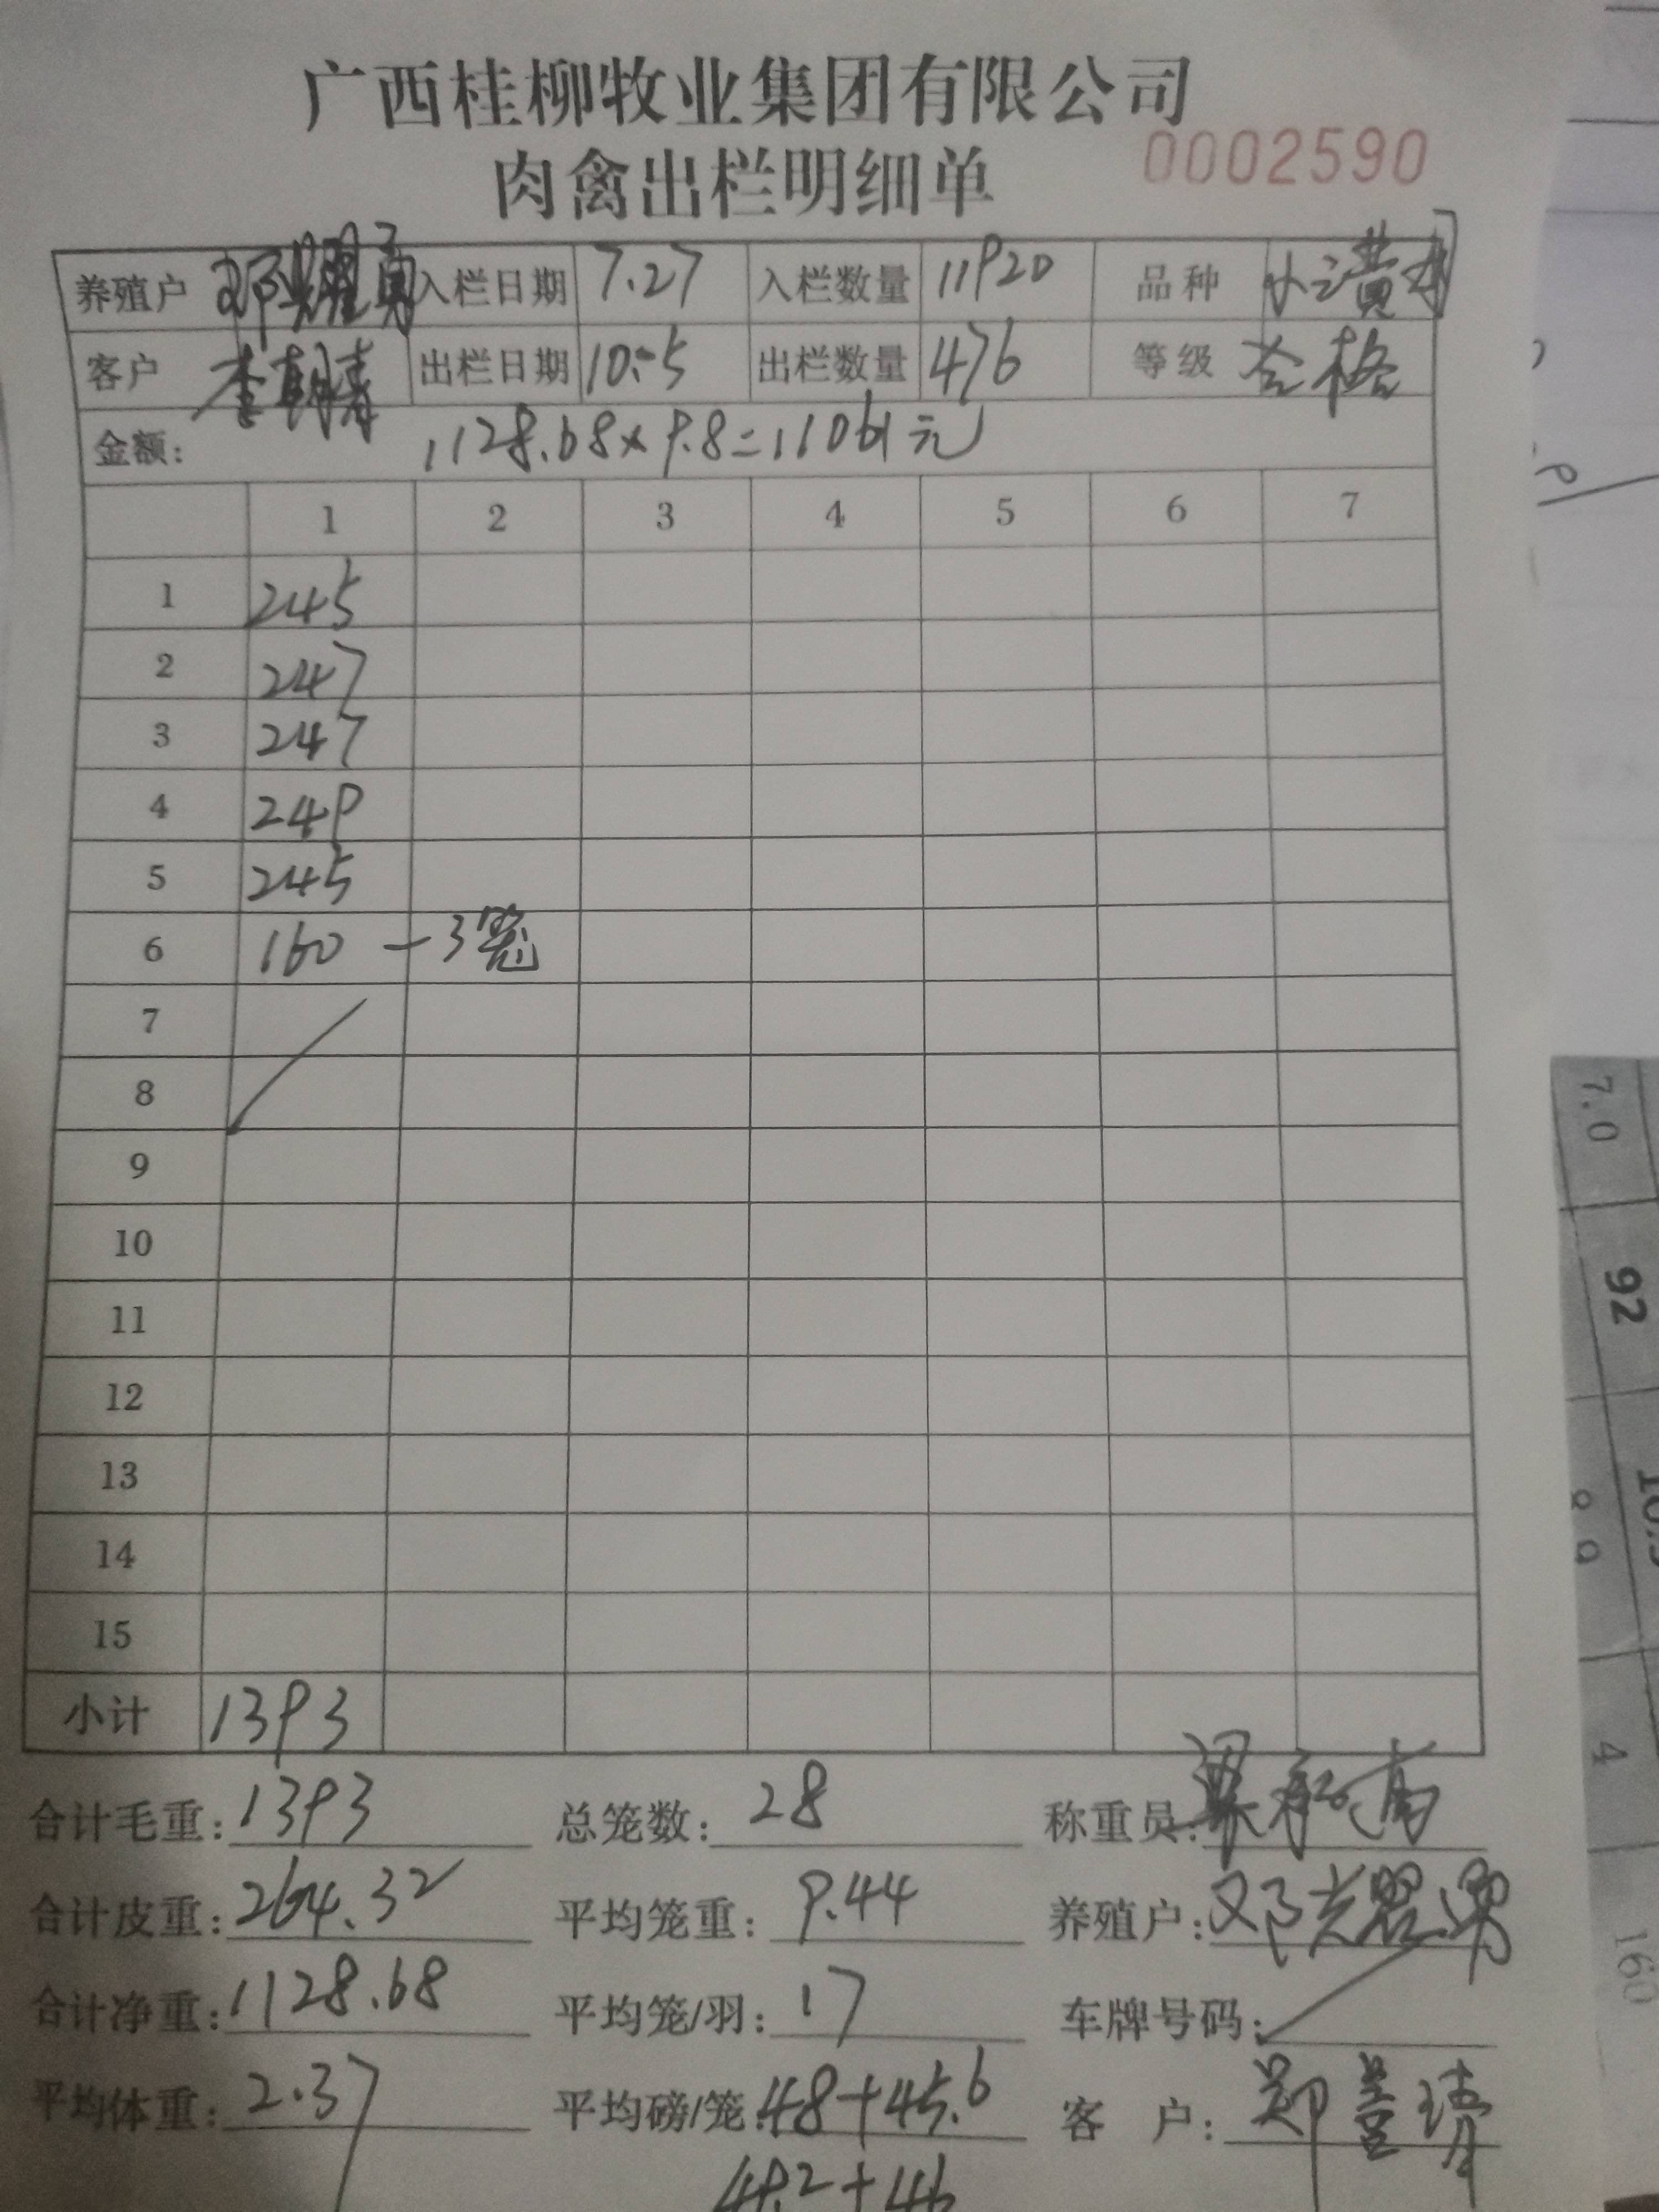 广西桂柳牧业集团有限公司
肉禽出栏明细单 0002590
养殖户 邓光耀勇 入栏日期 7.27 入栏数量 11920 品种
客户 李朝清 出栏日期 10.5 出栏数量 476 等级 合格
金额: 1128.68×9.8=11061元
1 2 3 4 5 6 7
1 245
2 247
3 247
4 249
5 245
6 160 — 3笼
7
8
9
10
11
12
13
14
15
小计 1393
合计毛重: 1393 总笼数: 28 称重员:
合计皮重: 264.32 平均笼重: 9.44 养殖户:
合计净重: 1128.68 平均笼/羽: 17 车牌号码:
平均体重: 2.37 平均磅/笼: 48+45.6 客户:
48.2+46
7.0
92
4
160